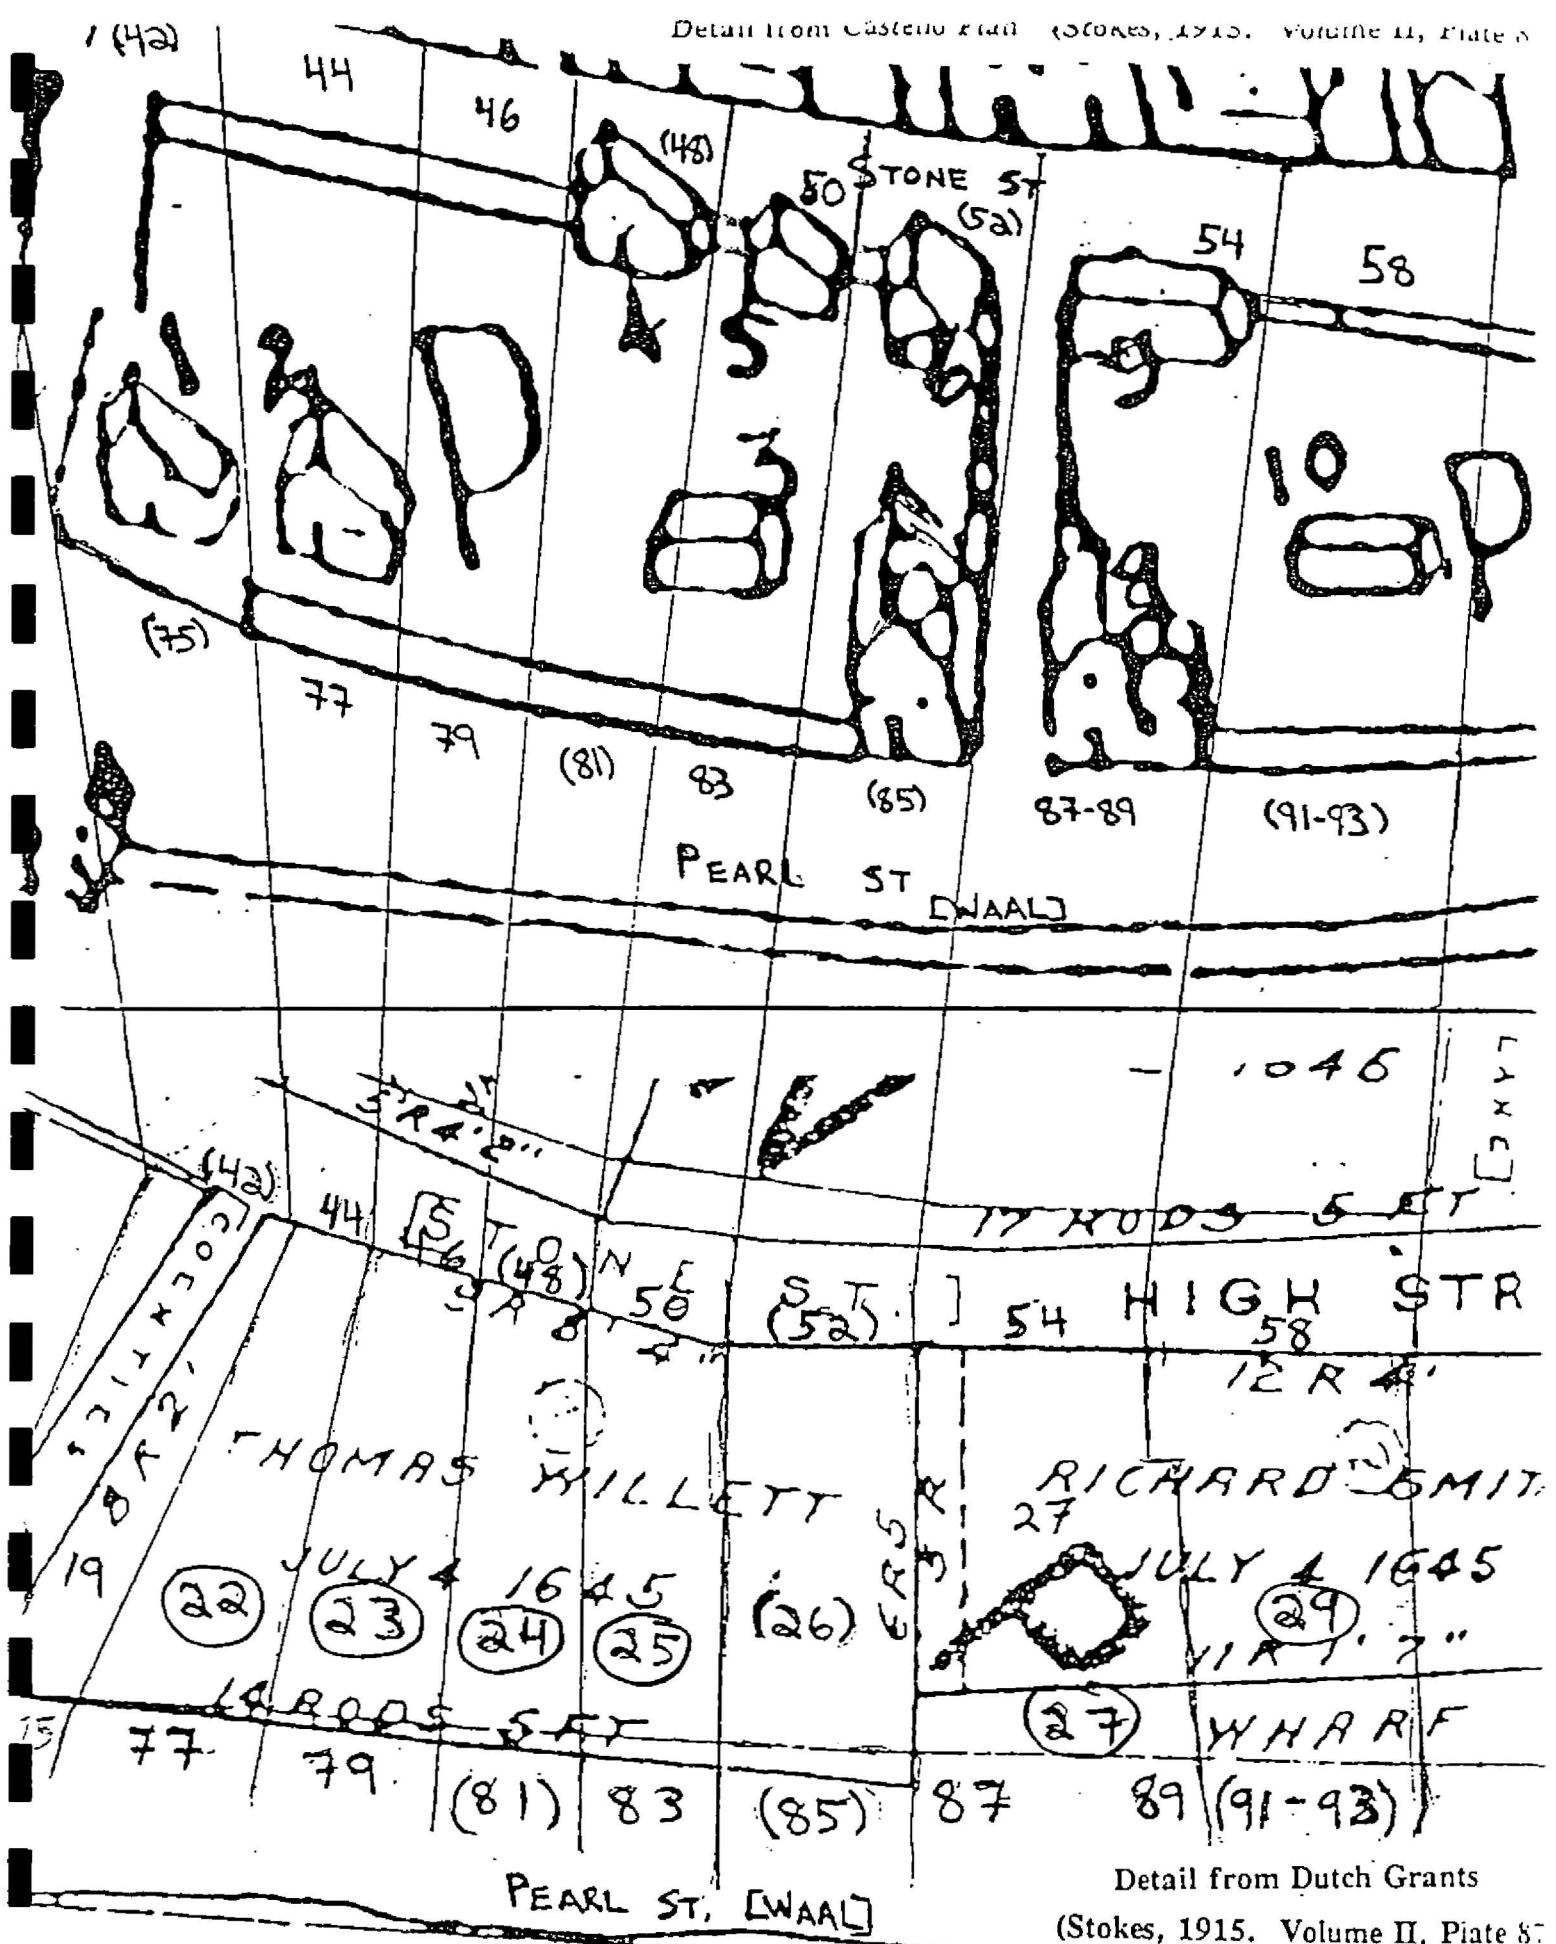 Detail from Castello Plan (Stokes, 1915. Volume II, Plate 8
(42)
44
46
(48)
50
STONE ST
(52)
54
58
5
3
10
(75)
77
79
(81)
83
(85)
87-89
(91-93)
PEARL ST
[WAAL]
1046
5 R 4' 2"
17 RODS 5 FT
(42)
44
[STONE ST.]
46
(48)
50
(52)
54
58
HIGH STR
12 R 4'
THOMAS WILLETT
RICHARD SMIT
27
JULY 4 1645
JULY 4 1645
3 R
19
22
23
24
25
(26)
27
29
11 R 1' 7"
14 RODS 5 FT
WHARF
77
79
(81)
83
(85)
87
89
(91-93)
PEARL ST. [WAAL]
Detail from Dutch Grants
(Stokes, 1915. Volume II, Plate 87